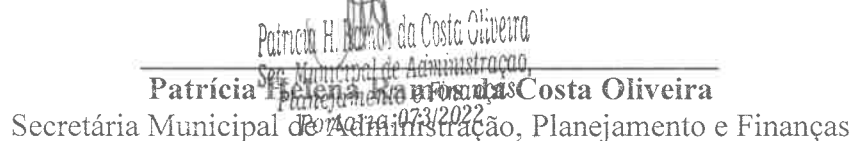 Patricia H. Ramos da Costa Oliveira
Sec. Municipal de Administração,
Planejamento e Finanças
Portaria 073/2022
Patrícia Helena Ramos da Costa Oliveira
Secretária Municipal de Administração, Planejamento e Finanças